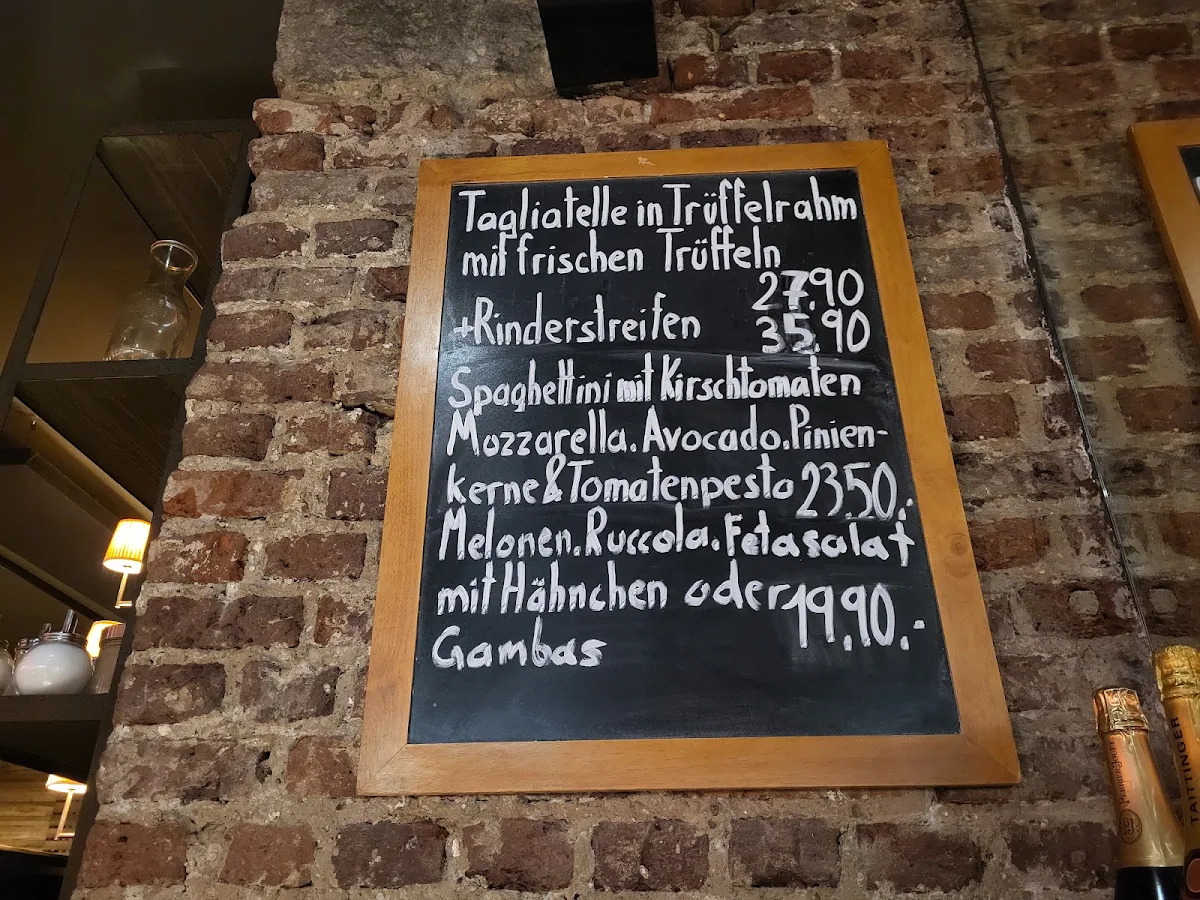 Tagliatelle in Trüffelrahm
mit frischen Trüffeln
27,90
+Rinderstreifen 35,90
Spaghettini mit Kirschtomaten
Mozzarella. Avocado. Pinien-
kerne & Tomatenpesto 23,50.-
Melonen. Ruccola. Fetasalat
mit Hähnchen oder 19,90.-
Gambas
TAITTINGER